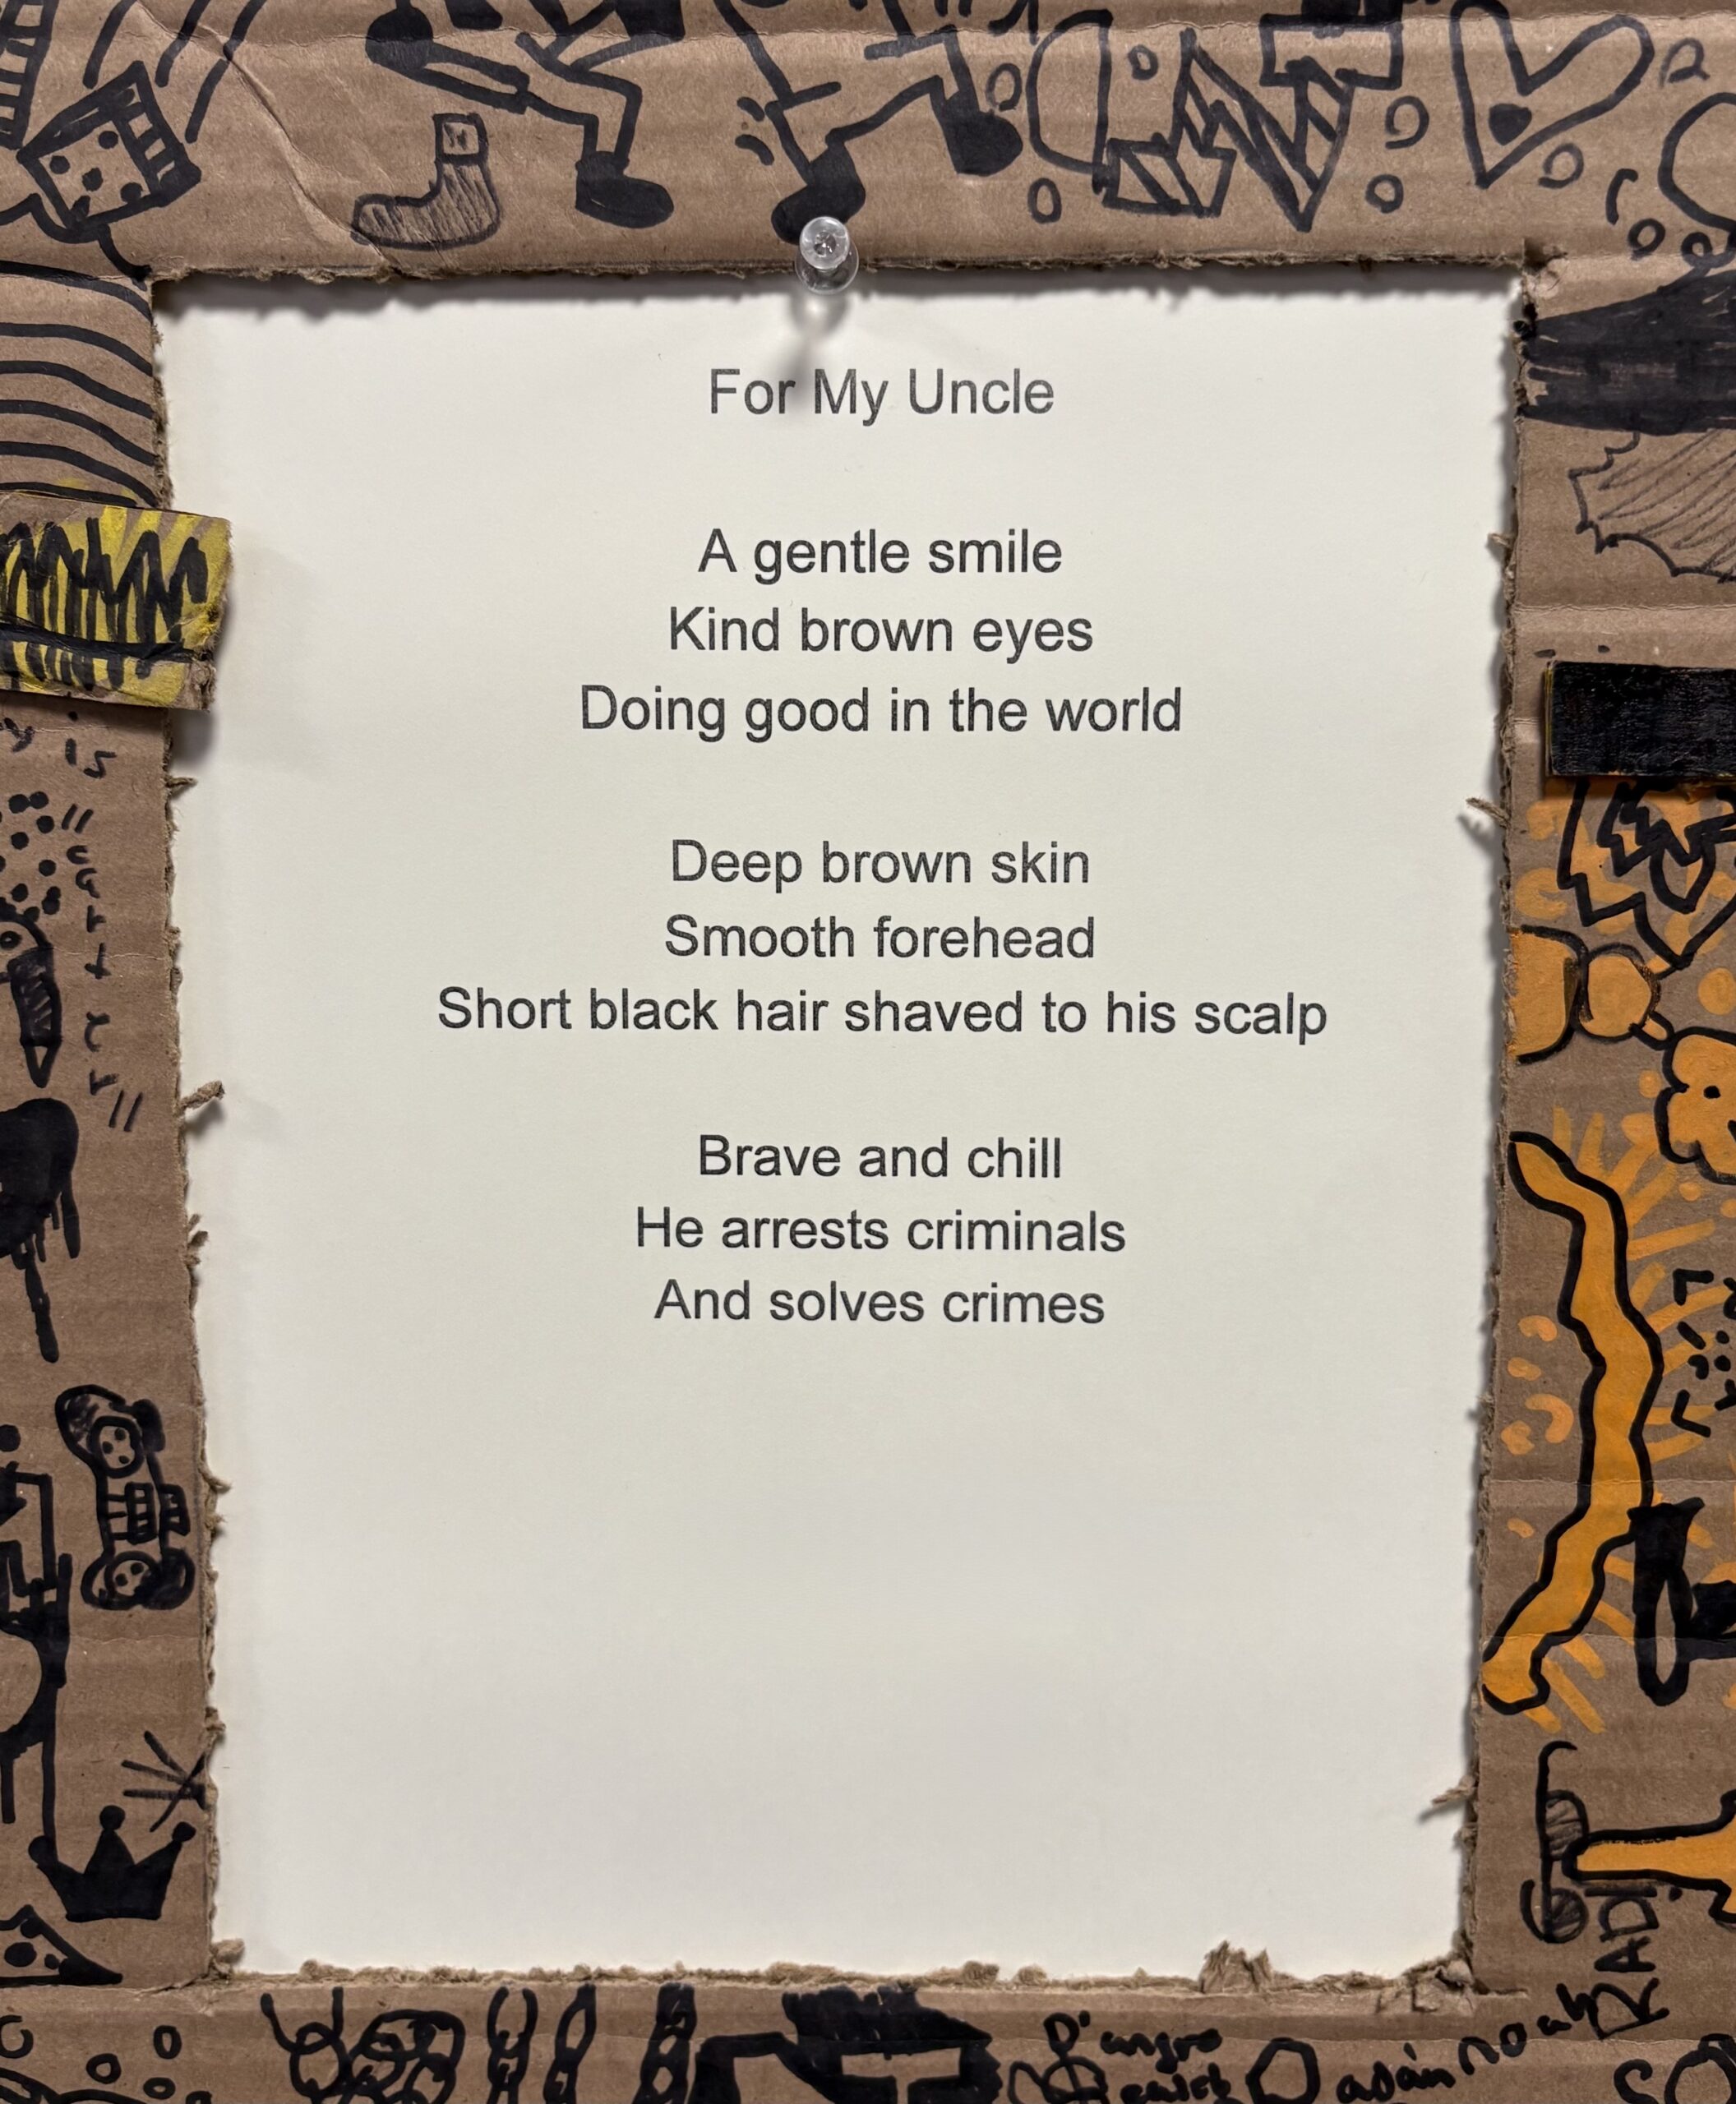 For My Uncle
A gentle smile
Kind brown eyes
Doing good in the world
Deep brown skin
Smooth forehead
Short black hair shaved to his scalp
Brave and chill
He arrests criminals
And solves crimes
D'angro
adán
noah
RADI